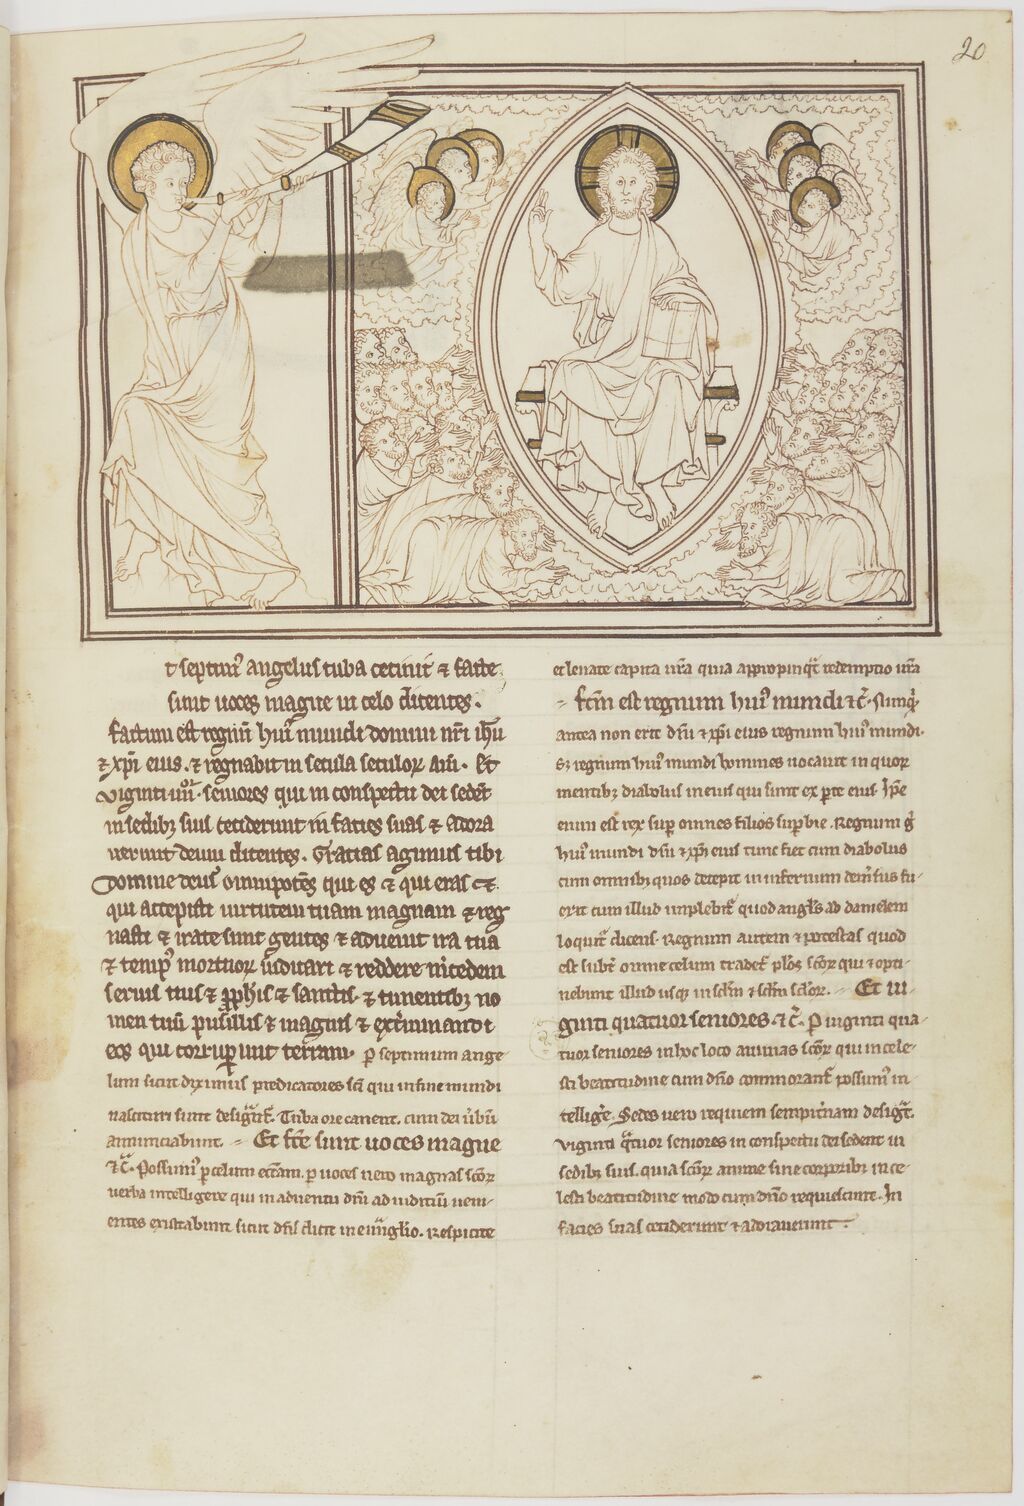 20
t septim' angelus tuba cecinit & facte
sunt uoces magne in celo dicentes.
Factum est regnũ hui' mundi domini nr̃i ihũ
& xp̃i eius. & regnabit in secula seculoꝝ am̃. Et
uiginti iiii⁰ʳ. seniores qui in conspectu dei sedẽt
in sedibꝫ suis ceciderunt in facies suas & adora
uerunt deum dicentes. Gracias agimus tibi
Domine deus omnipotẽs qui es & qui eras &
qui accepisti uirtutem tuam magnam & reg
nasti & irate sunt gentes & aduenit ira tua
& temp' mortuoꝝ iudicari & reddere m̃cedem
seruis tuis & ꝓphis & sanctis & timentibꝫ no
men tuũ pusillis & magnis & ext̃minandi
eos qui corruꝑunt terram. ꝑ septimum ange
lum sicut diximus predicatores sc̃i qui in fine mundi
nascituri sunt designãt̃. Tuba ore canent. cum dei ũbũ
annunciabunt. Et fc̃e sunt uoces magne
&c̃. Possum' ꝑ celum eccl̃am. ꝑ uoces uero magnas sc̃oꝝ
uerba intelligere qui in aduentu dñi ad iudicium ueni-
entes exultabunt sicut dñs dicit in euãglio. Respicite
et leuate capita ur̃a quia appropinqͣt redemptio ur̃a
fc̃m est regnum hui' mundi &c̃. Nunqͥd
antea non erit dñi & xp̃i eius regnum hui' mundi.
Sꝫ regnum hui' mundi homines uocauit in quoꝝ
mentibꝫ diabolus in eius qui sunt ex ꝑte eius. Ip̃e
enim est rex suꝑ omnes filios suꝑbie. Regnum g̊
hui' mundi dñi & xp̃i eius tunc fiet cum diabolus
cum omnibꝫ quos decepit in infernum demersus fu-
erit cum illud implebit̃ quod angl̃s ad danielem
loquit̃ dicens. Regnum autem & potestas quod
est subt̃ omne celum tradet̃ pl̃o sc̃oꝝ qui & opti-
nebunt illud usqꝫ in scl̃m & scl̃m scl̃oꝝ. Et ui-
ginti quatuor seniores. &c̃. ꝑ uiginti qua-
tuor seniores in hoc loco animas sc̃oꝝ qui in cele-
sti beatitudine cum dño commorant̃ possum' in-
tellig̃e. Sedes uero requiem sempit̃nam designãt.
Uiginti qͣtuor seniores in conspectu dei sedent in
sedibꝫ suis. quia sc̃oꝝ anime sine corporibꝫ in ce-
lesti beatitudine modo cum dño requiescunt. In
facies suas ceciderunt & adorauerunt.